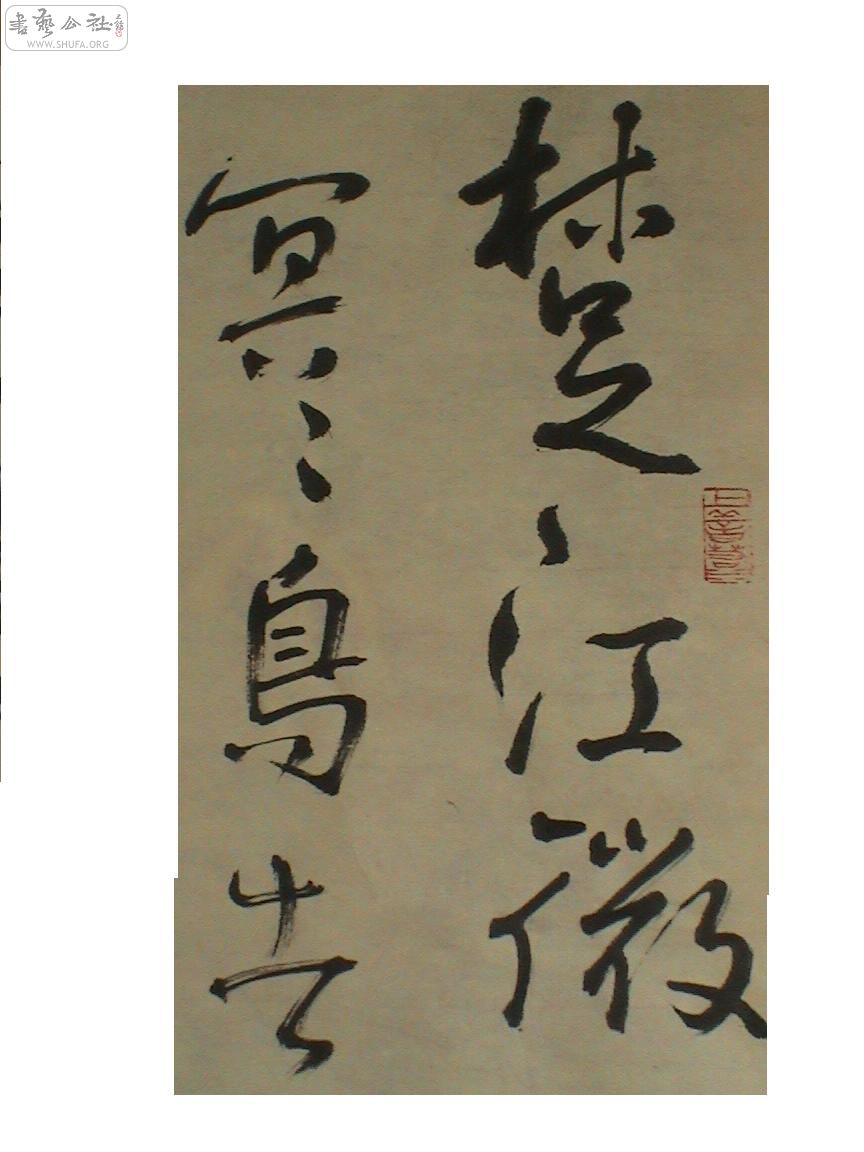 書藝公社
WWW.SHUFA.ORG
楚江微
冥〻鳥去